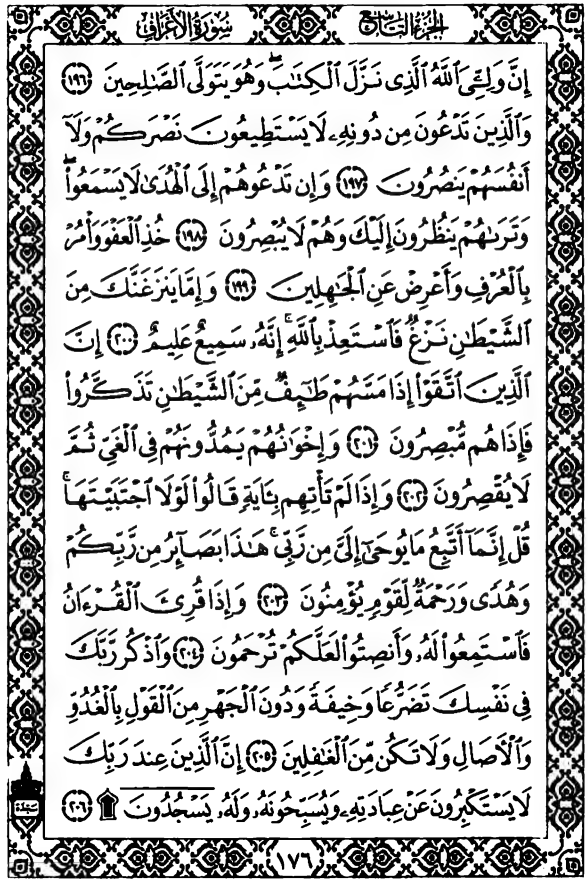 الجزء التاسع سورة الأعراف
إِنَّ وَلِـِّۧيَ ٱللَّهُ ٱلَّذِي نَزَّلَ ٱلۡكِتَٰبَۖ وَهُوَ يَتَوَلَّى ٱلصَّٰلِحِينَ ١٩٦
وَٱلَّذِينَ تَدۡعُونَ مِن دُونِهِۦ لَا يَسۡتَطِيعُونَ نَصۡرَكُمۡ وَلَآ
أَنفُسَهُمۡ يَنصُرُونَ ١٩٧ وَإِن تَدۡعُوهُمۡ إِلَى ٱلۡهُدَىٰ لَا يَسۡمَعُواْۖ
وَتَرَىٰهُمۡ يَنظُرُونَ إِلَيۡكَ وَهُمۡ لَا يُبۡصِرُونَ ١٩٨ خُذِ ٱلۡعَفۡوَ وَأۡمُرۡ
بِٱلۡعُرۡفِ وَأَعۡرِضۡ عَنِ ٱلۡجَٰهِلِينَ ١٩٩ وَإِمَّا يَنزَغَنَّكَ مِنَ
ٱلشَّيۡطَٰنِ نَزۡغٞ فَٱسۡتَعِذۡ بِٱللَّهِۚ إِنَّهُۥ سَمِيعٌ عَلِيمٌ ٢٠٠ إِنَّ
ٱلَّذِينَ ٱتَّقَوۡاْ إِذَا مَسَّهُمۡ طَٰٓئِفٞ مِّنَ ٱلشَّيۡطَٰنِ تَذَكَّرُواْ
فَإِذَا هُم مُّبۡصِرُونَ ٢٠١ وَإِخۡوَٰنُهُمۡ يَمُدُّونَهُمۡ فِي ٱلۡغَيِّ ثُمَّ
لَا يُقۡصِرُونَ ٢٠٢ وَإِذَا لَمۡ تَأۡتِهِم بِـَٔايَةٖ قَالُواْ لَوۡلَا ٱجۡتَبَيۡتَهَاۚ
قُلۡ إِنَّمَآ أَتَّبِعُ مَا يُوحَىٰٓ إِلَيَّ مِن رَّبِّيۚ هَٰذَا بَصَآئِرُ مِن رَّبِّكُمۡ
وَهُدٗى وَرَحۡمَةٞ لِّقَوۡمٖ يُؤۡمِنُونَ ٢٠٣ وَإِذَا قُرِئَ ٱلۡقُرۡءَانُ
فَٱسۡتَمِعُواْ لَهُۥ وَأَنصِتُواْ لَعَلَّكُمۡ تُرۡحَمُونَ ٢٠٤ وَٱذۡكُر رَّبَّكَ
فِي نَفۡسِكَ تَضَرُّعٗا وَخِيفَةٗ وَدُونَ ٱلۡجَهۡرِ مِنَ ٱلۡقَوۡلِ بِٱلۡغُدُوِّ
وَٱلۡأٓصَالِ وَلَا تَكُن مِّنَ ٱلۡغَٰفِلِينَ ٢٠٥ إِنَّ ٱلَّذِينَ عِندَ رَبِّكَ
لَا يَسۡتَكۡبِرُونَ عَنۡ عِبَادَتِهِۦ وَيُسَبِّحُونَهُۥ وَلَهُۥ يَسۡجُدُونَۤ ۩ ٢٠٦
سجدة
١٧٦